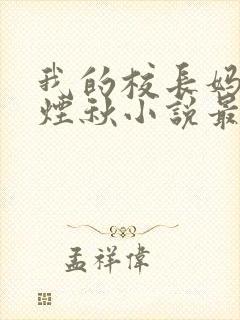 我的校長媽
煙秋小說最
孟祥偉